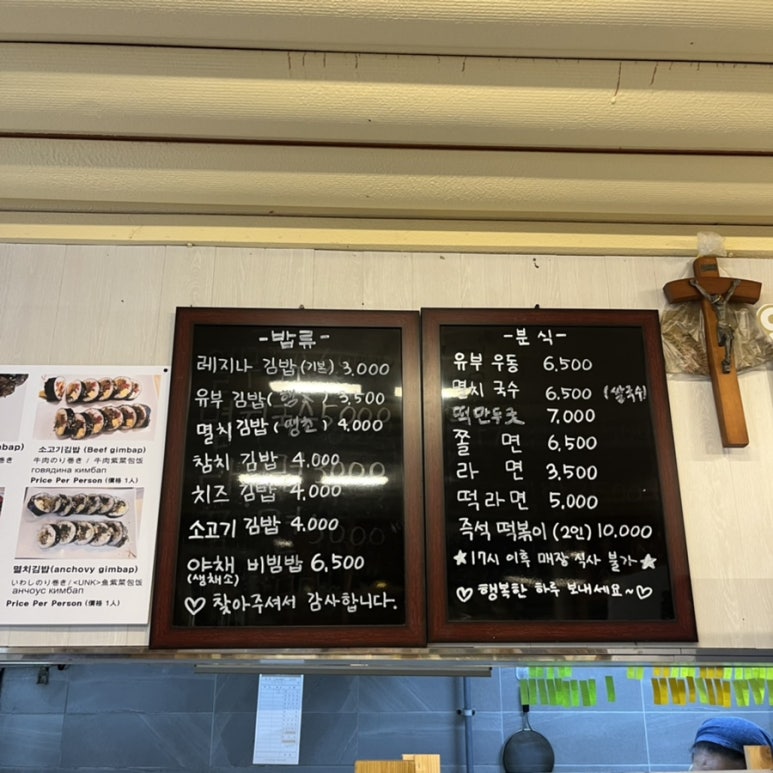 bap)
き
包饭
소고기김밥 (Beef gimbap)
牛肉のり巻き / 牛肉紫菜包饭
говядина кимбап
Price Per Person (價格 1人)
멸치김밥(anchovy gimbap)
いわしのり巻き/<UNK>鱼紫菜包饭
анчоус кимбап
Price Per Person (價格 1人)
-밥류-
레지나 김밥(기본) 3,000
유부 김밥( 3,500
멸치김밥(땡초) 4,000
참치 김밥 4,000
치즈 김밥 4,000
소고기 김밥 4,000
야채 비빔밥 6,500
(생채소)
♡ 찾아주셔서 감사합니다.
-분식-
유부 우동 6,500
멸치 국수 6,500 (쌀국수)
떡만두국 7,000
쫄 면 6,500
라 면 3,500
떡라면 5,000
즉석 떡볶이 (2인) 10,000
★17시 이후 매장 식사 불가★
♡ 행복한 하루 보내세요~♡